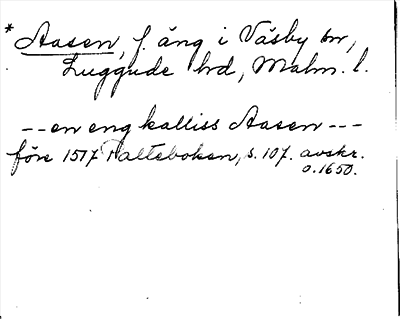 * Aasen, f. äng i Väsby sn,
Luggude hd, Malm. l.
-- en eng kalliss Aasen ---
före 1517 Palteboken, s. 107. avskr.
o. 1650.